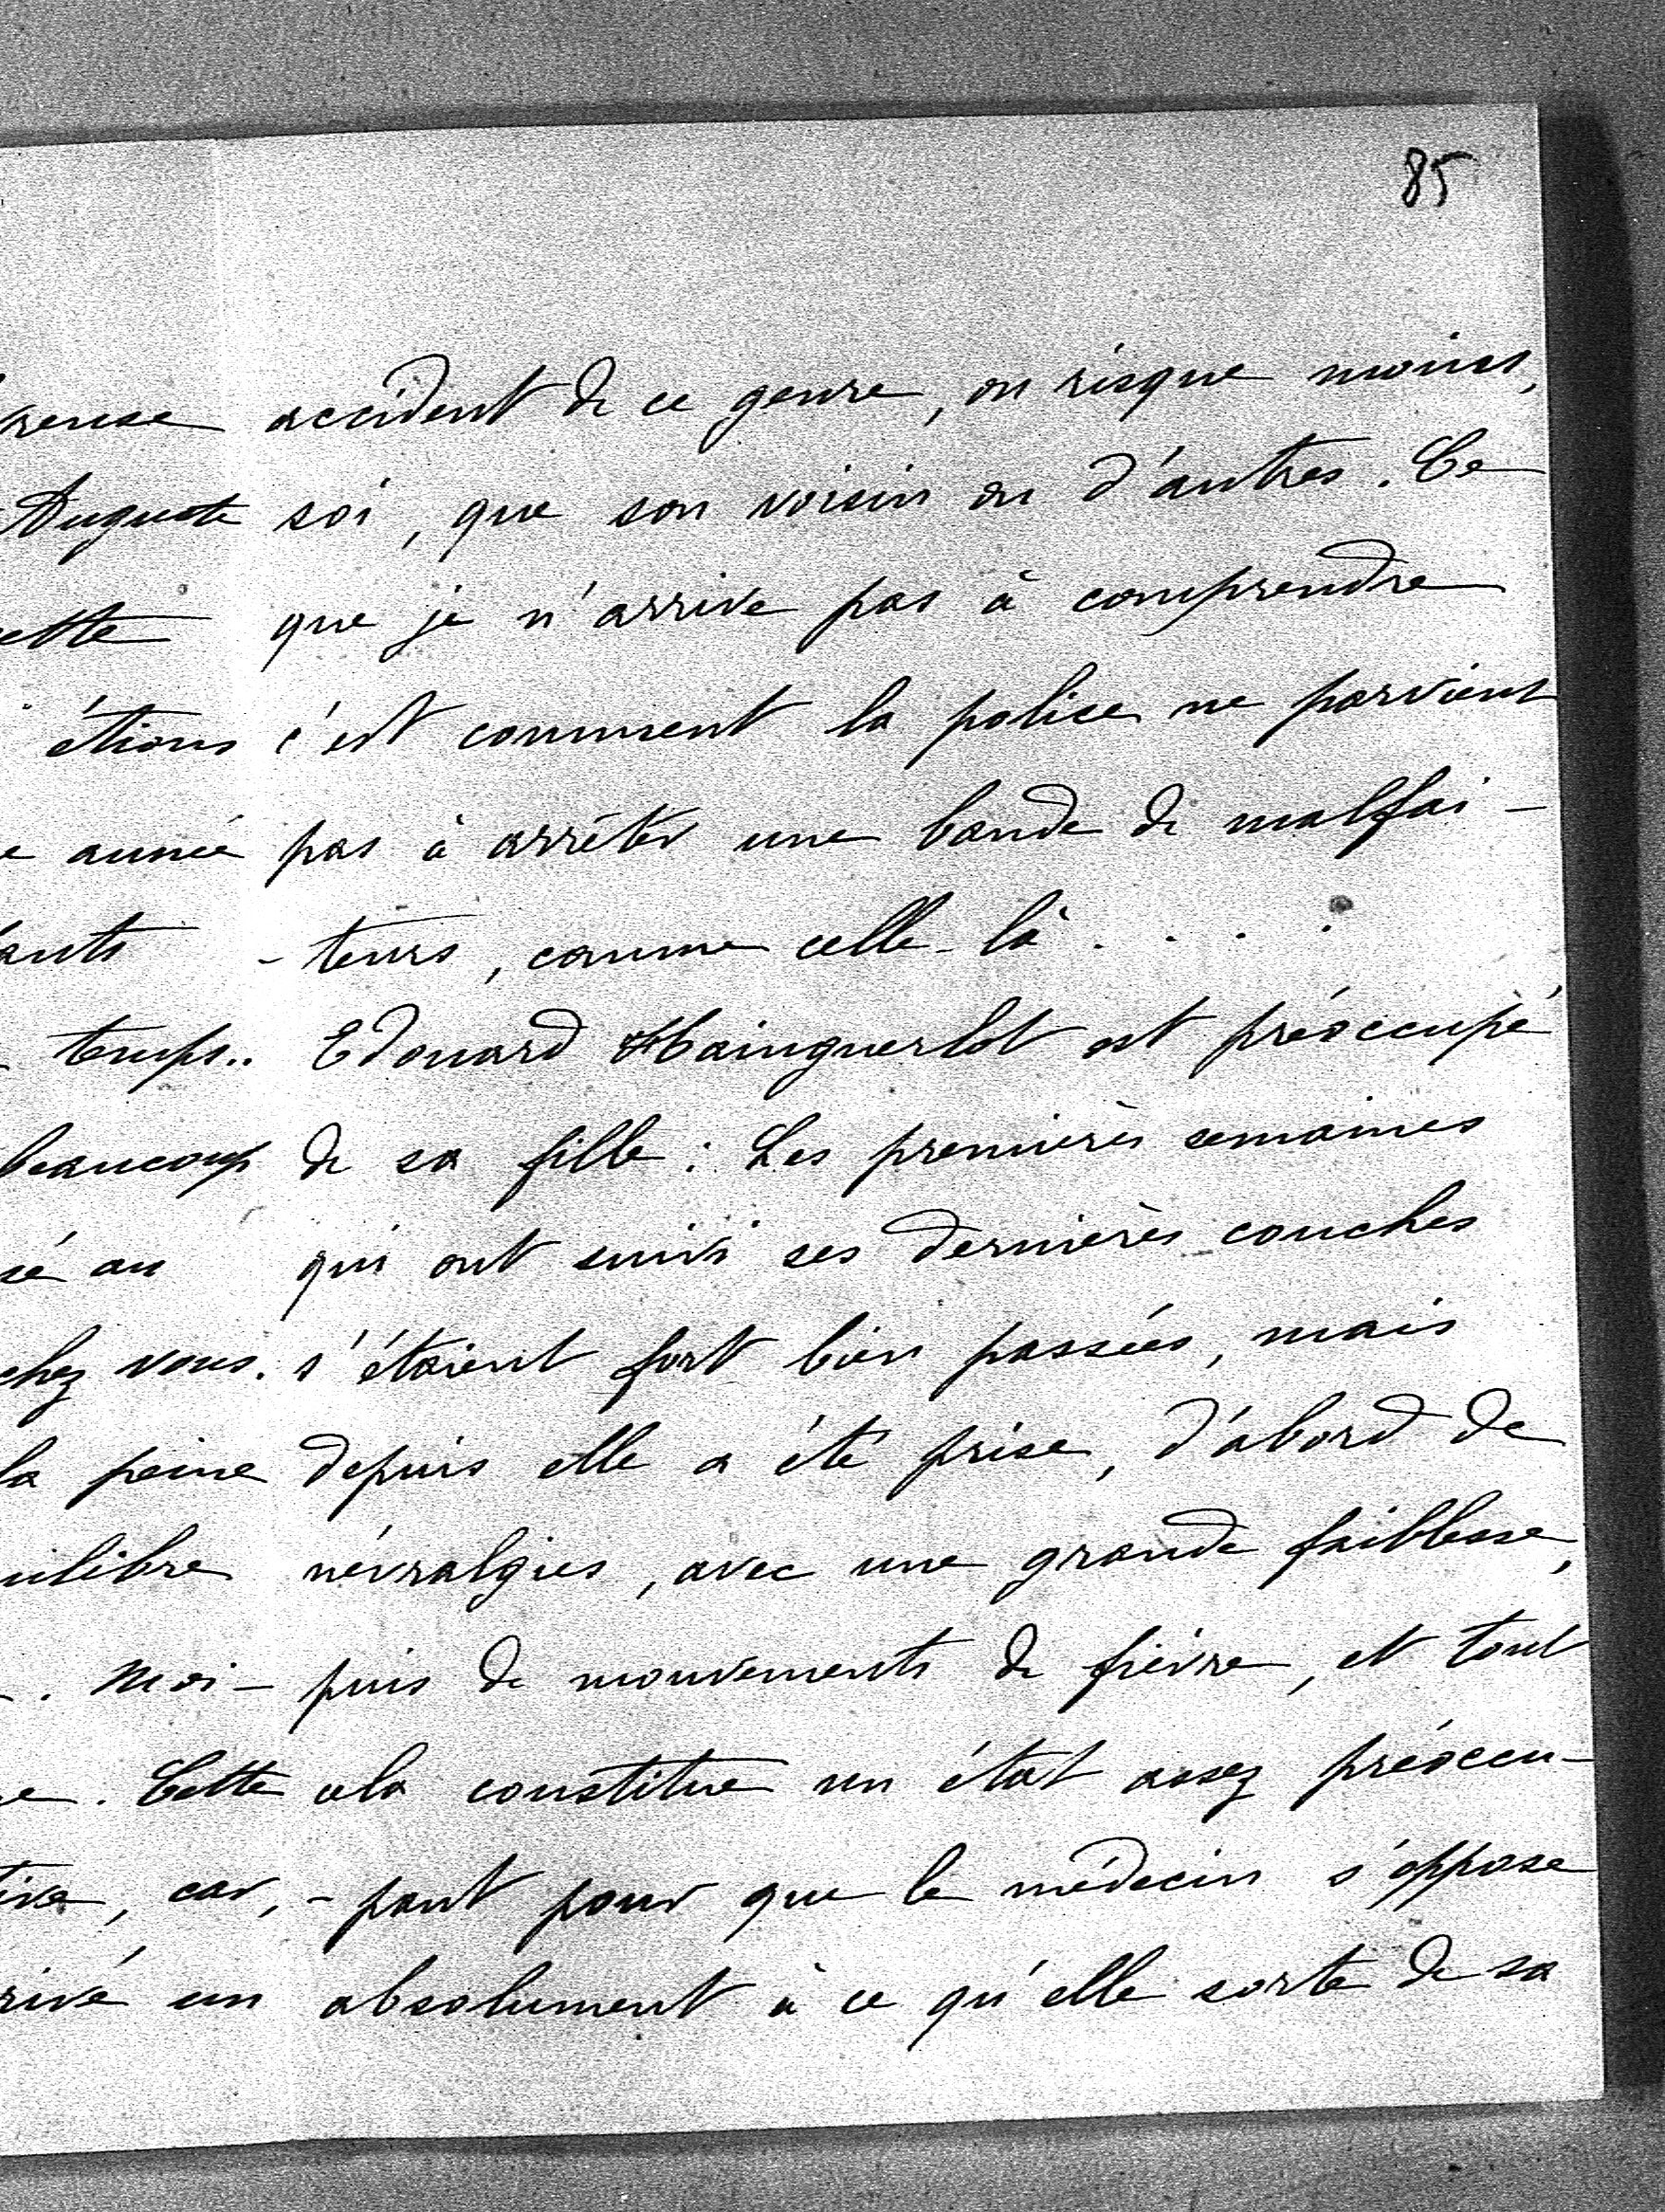 85
reuse
Auguste
cette
étions
e année
ants
temps..
beaucoup
sé au
chez vous.
la peine
uilibre
. Moi-
e. Cette
tive, car,
rivé un
accident de ce genre, on risque moins,
soi, que son voisin ou d'autres. Ce
que je n'arrive pas à comprendre
c'est comment la police ne parvient
pas à arrêter une bande de malfai-
-teurs, comme celle-là . . . .
Edouard Hainguerlot est préoccupé
de sa fille : Les premières semaines
qui ont suivi ses dernières couches
s'étaient fort bien passées, mais
depuis elle a été prise, d'abord de
névralgies, avec une grande faiblesse,
puis de mouvements de fièvre, et tout
cela constitue un état assez préoccu-
-pant pour que le médecin s'oppose
absolument à ce qu'elle sorte de sa